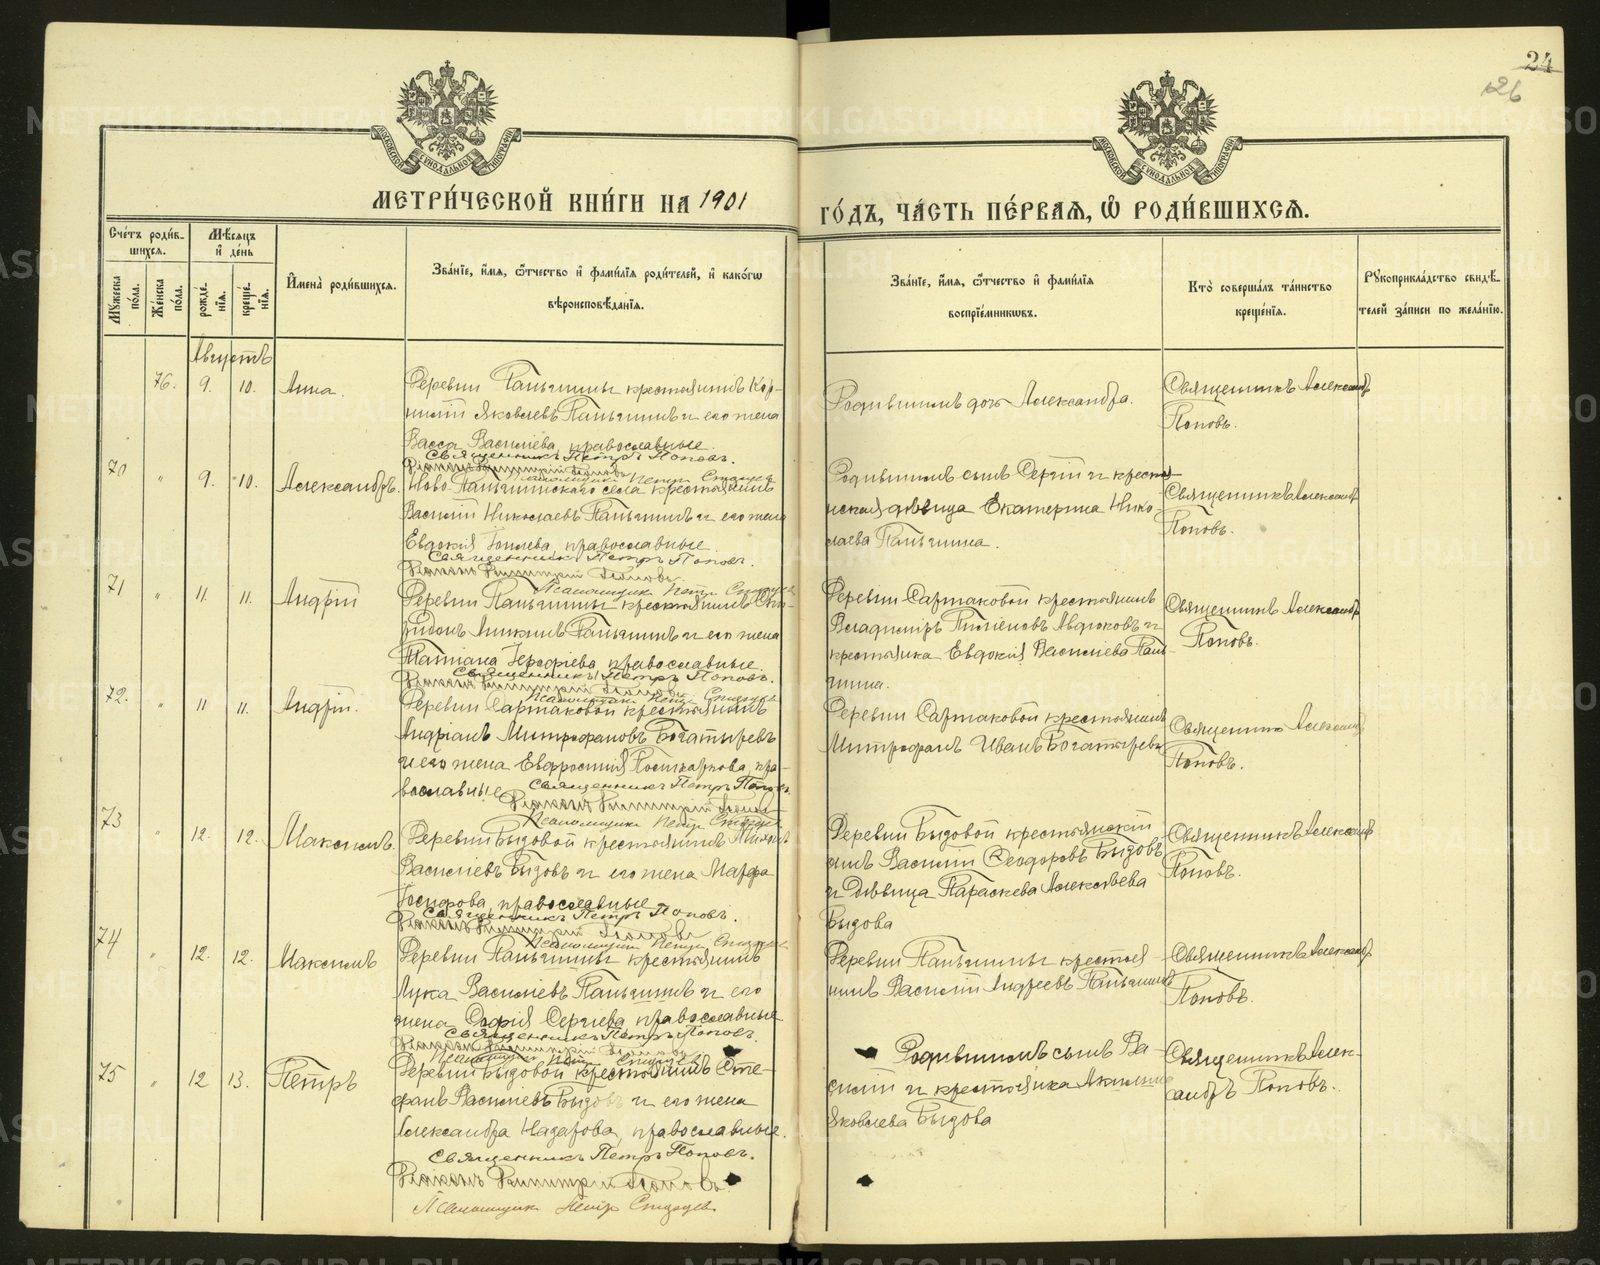 24
26
МОСКОВСКОЙ СѴНОДАЛЬНОЙ ТИПОГРАФІИ
МОСКОВСКОЙ СѴНОДАЛЬНОЙ ТИПОГРАФІИ
МЕТРИ́ЧЕСКОЙ КНИ́ГИ НА 1901
ГО́ДЪ, ЧА́СТЬ ПЕ́РВАЯ, Ѽ РОДИ́ВШИХСЯ.
Счётъ роди́в-
шихся.
Мꙋжеска по́ла.
Же́нска по́ла.
Мѣ́сяцъ
и҆ де́нь
рожде́нїя.
креще́нїя.
И҆мена̀ роди́вшихся.
Зва́нїе, и҆́мя, ѻ҆́тчество и҆ фами́лїя роди́телей, и҆ како́гѡ
вѣроисповѣ́данїя.
Зва́нїе, и҆́мя, ѻ҆́тчество и҆ фами́лїя
воспрїе́мникѡвъ.
Кто̀ соверша́лъ та́инство
креще́нїя.
Рꙋкоприкла́дство свидѣ́-
телей за́писи по жела́нїю.
Августъ
76. 9. 10. Анна.
Деревни Паньшины крестьянинъ Кор-
нилій Яковлевъ Паньшинъ и его жена
Васса Василіева, православные.
Священникъ Петръ Поповъ.
Псаломщикъ Петръ
Родившимъ дочь Александра.
Священникъ Александръ
Поповъ.
70 " 9. 10. Александръ.
Ново-Паньшинскаго села крестьянинъ
Василій Николаевъ Паньшинъ и его жена
Евдокія, православные.
Священникъ Петръ Поповъ.
Псаломщикъ Петръ
Родившимъ сынъ Сергій и крестья-
нская дѣвица Екатерина Нико-
лаева Паньшина.
Священникъ Александръ
Поповъ.
71 " 11. 11. Андрій
Деревни Паньшины крестьянинъ Спи-
ридонъ Паньшинъ и его жена
Татіана, православные.
Священникъ Петръ Поповъ.
Псаломщикъ Петръ
Деревни Сартаковой крестьянинъ
Владиміръ Авдюковъ и
крестьянка Евдокія Василіева Пань-
шина.
Священникъ Александръ
Поповъ.
72. " 11 11. Андрій.
Деревни Сартаковой крестьянинъ
Андріанъ Митрофановъ Богатыревъ
и его жена Евфросинія, пра-
вославные Священникъ Петръ Поповъ.
Псаломщикъ Петръ
Деревни Сартаковой крестьянинъ
Митрофанъ Ивановъ Богатыревъ
Священникъ Александръ
Поповъ.
73 " 12. 12. Максимъ.
Деревни Быдовой крестьянинъ
Василіевъ Быдовъ и его жена Марфа
Іосифова, православные
Священникъ Петръ Поповъ.
Псаломщикъ Петръ
Деревни Быдовой крестьянскій
сынъ Василій Ѳеодоровъ Быдовъ
и дѣвица Параскева Алексѣева
Быдова
Священникъ Александръ
Поповъ.
74 " 12. 12. Максимъ
Деревни Паньшины крестьянинъ
Лука Василіевъ Паньшинъ и его
жена Софія Сергіева, православные.
Священникъ Петръ Поповъ.
Псаломщикъ Петръ
Деревни Паньшины крестья-
нинъ Василій Андреевъ Паньшинъ
Священникъ Александръ
Поповъ.
75 " 12 13. Петръ
Деревни Быдовой крестьянинъ Сте-
фанъ Василіевъ Быдовъ и его жена
Александра Назарова, православные.
Священникъ Петръ Поповъ.
Псаломщикъ Петръ
Родившимъ сынъ Ва-
силій и крестьянка Акилина
Яковлева Быдова
Священникъ Алек-
сандръ Поповъ.
METRIKI.GASO-URAL.RU